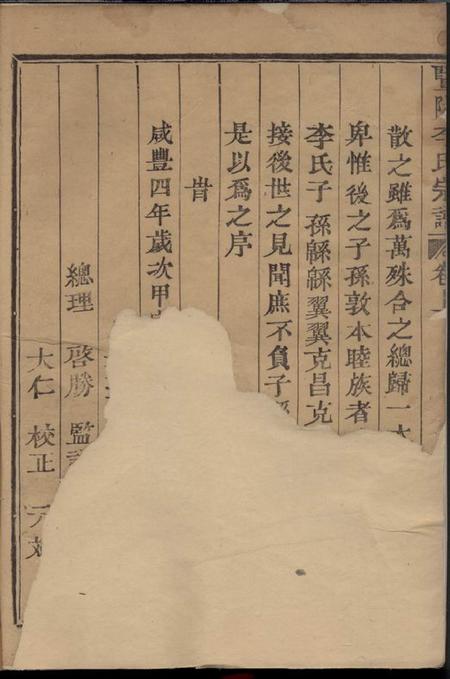 暨陽李氏宗譜 卷
散之雖爲萬殊合之總歸一本
卑惟後之子孫敦本睦族者
李氏子孫緜緜翼翼克昌克
接後世之見聞庶不負子孫
是以爲之序
旹
咸豐四年歲次甲
總理 啓勝 監
大仁 校正 元